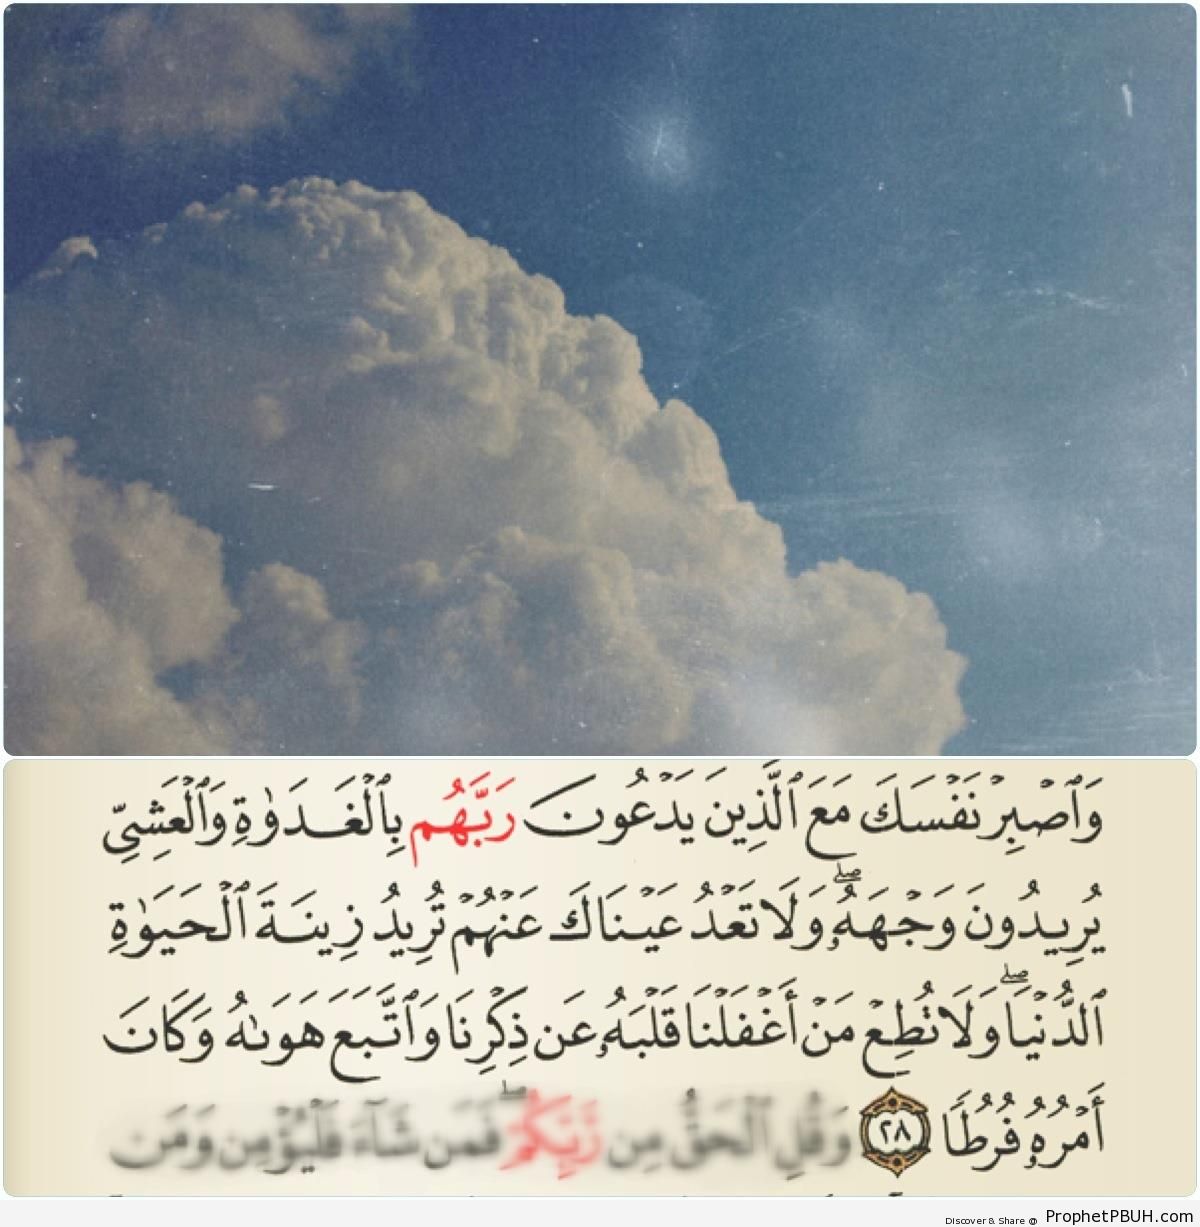 وَٱصۡبِرۡ نَفۡسَكَ مَعَ ٱلَّذِينَ يَدۡعُونَ رَبَّهُم بِٱلۡغَدَوٰةِ وَٱلۡعَشِيِّ
يُرِيدُونَ وَجۡهَهُۥۖ وَلَا تَعۡدُ عَيۡنَاكَ عَنۡهُمۡ تُرِيدُ زِينَةَ ٱلۡحَيَوٰةِ
ٱلدُّنۡيَاۖ وَلَا تُطِعۡ مَنۡ أَغۡفَلۡنَا قَلۡبَهُۥ عَن ذِكۡرِنَا وَٱتَّبَعَ هَوَىٰهُ وَكَانَ
أَمۡرُهُۥ فُرُطٗا ٢٨ وَقُلِ ٱلۡحَقُّ مِن رَّبِّكُمۡۖ فَمَن شَآءَ فَلۡيُؤۡمِن وَمَن
Discover & Share @ ProphetPBUH.com